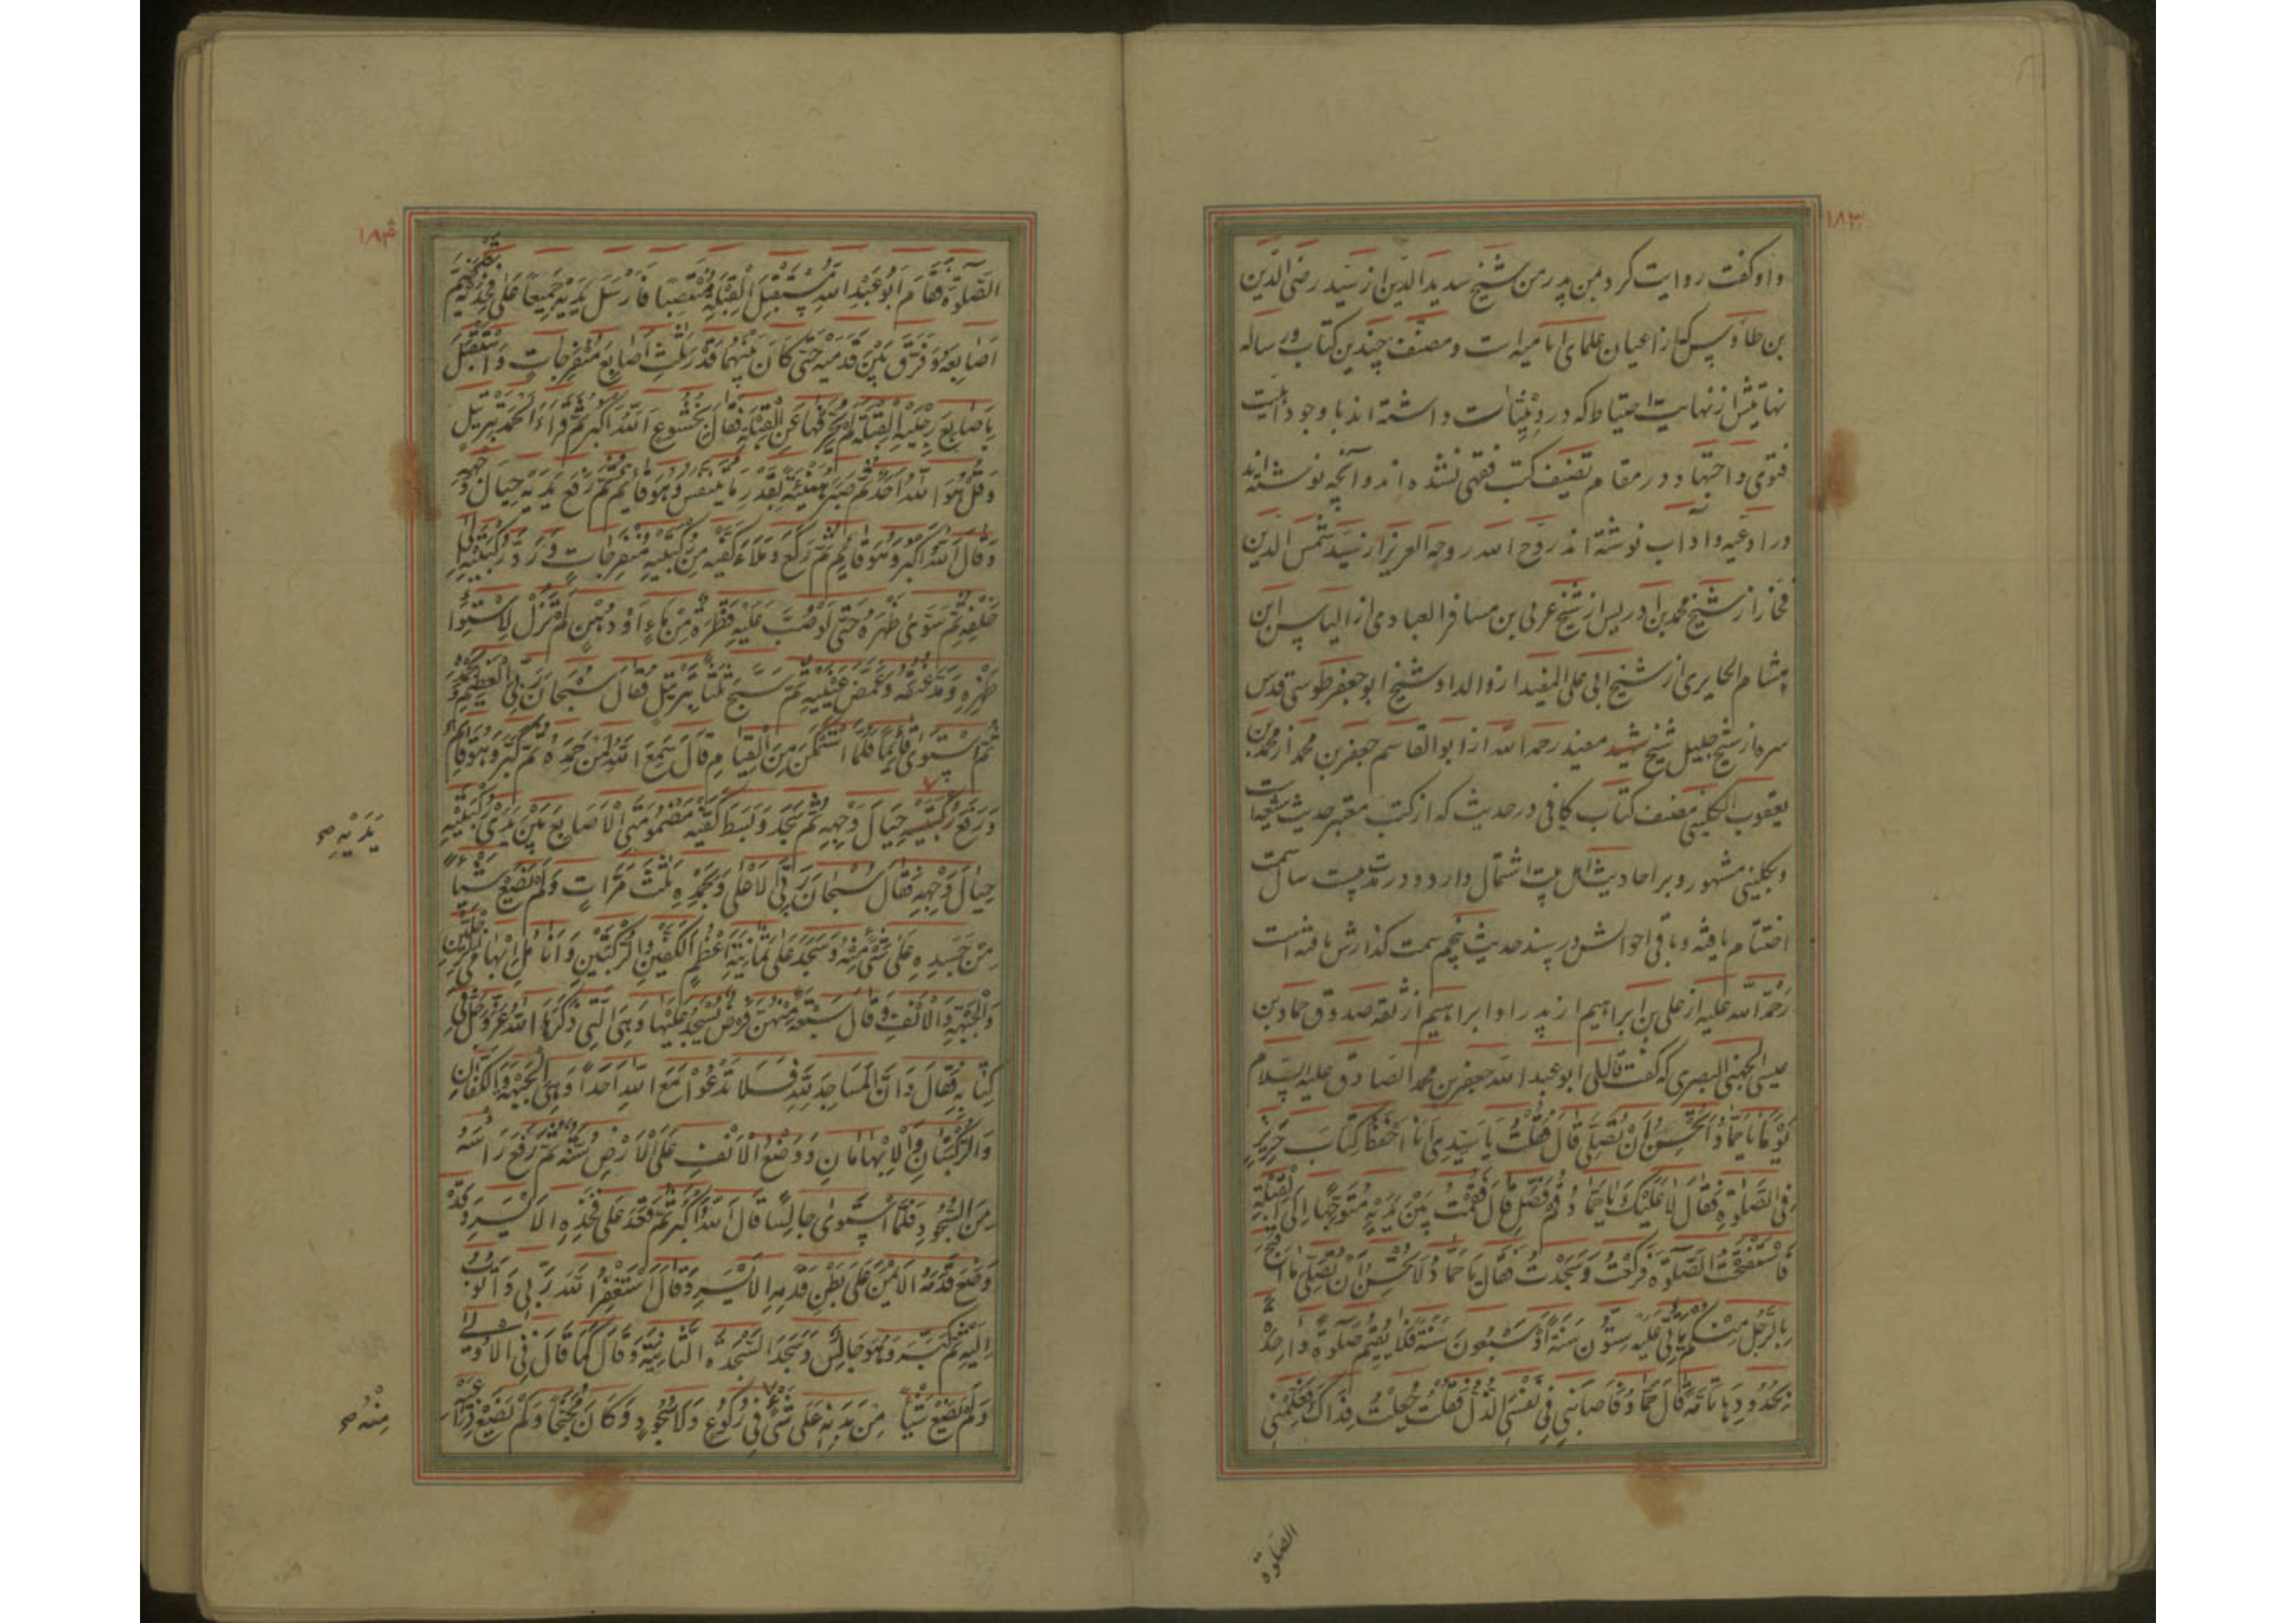 ۱۸۳
و او گفت روایت کرد بمن پدر من شیخ سدید الدین از سید رضی الدین
بن طاوس که از اعیان علمای امامیه است و مصنف چندین کتاب و رساله
نهایتش از نهایت احتیاط که در دینیات داشته اند با وجود اهلیت
فتوی و اجتهاد در مقام تصنیف کتب فقهی نشده اند و آنچه نوشته اند
در ادعیه و اداب نوشته اند روح الله روحه العزیز از سید شمس الدین
فخار از شیخ محمد بن ادریس از شیخ عربی بن مسافر العبادی از الیاس ابن
هشام الحایری از شیخ ابی علی المفید از والد او شیخ ابو جعفر طوسی قدس
سره از شیخ جلیل شیخ مفید رحمه الله از ابو القاسم جعفر بن محمد از محمد بن
یعقوب الکلینی مصنف کتاب کافی در حدیث که از کتب معتبر حدیث شیعه است
و بکلینی مشهور و بر احادیث اهل بیت اشتمال دارد و در مدت بیست سال سمت
اختتام یافته و باقی احوالش در سند حدیث پنجم سمت گذارش یافته است
رَحْمَةُ الله علیه از علی بن ابراهیم از پدر او ابراهیم از ثقه صدوق حماد بن
عیسی الجهنی البصری که گفت قال لی ابو عبد الله جعفر بن محمد الصادق علیه السلام
یَوْمًا یَا حَمَّادُ اَتُحْسِنُ اَنْ تُصَلِّیَ قَالَ فَقُلْتُ یَا سَیِّدِی اَنَا اَحْفَظُ کِتَابَ حَرِیزٍ
فِی الصَّلٰوةِ فَقَالَ لَا عَلَیْکَ یَا حَمَّادُ قُمْ فَصَلِّ قَالَ فَقُمْتُ بَیْنَ یَدَیْهِ مُتَوَجِّهًا اِلَی الْقِبْلَةِ
فَاسْتَفْتَحْتُ الصَّلٰوةَ فَرَکَعْتُ وَسَجَدْتُ فَقَالَ یَا حَمَّادُ لَا تُحْسِنُ اَنْ تُصَلِّیَ مَا اَقْبَحَ
بِالرَّجُلِ مِنْکُمْ یَأْتِی عَلَیْهِ سِتُّونَ سَنَةً اَوْ سَبْعُونَ سَنَةً فَلَا یُقِیمُ صَلٰوةً وَاحِدَةً
بِحُدُودِهَا تَامَّةً قَالَ حَمَّادُ فَاَصَابَنِی فِی نَفْسِیَ الذُّلُّ فَقُلْتُ جُعِلْتُ فِدَاکَ فَعَلِّمْنِی
الصلوة
۱۸۴
الصَّلٰوةَ فَقَامَ اَبُو عَبْدِ اللهِ مُسْتَقْبِلَ الْقِبْلَةِ مُنْتَصِبًا فَاَرْسَلَ یَدَیْهِ جَمِیعًا عَلٰی فَخِذَیْهِ قَدْ ضَمَّ
اَصَابِعَهُ وَفَرَّقَ بَیْنَ قَدَمَیْهِ حَتّٰی کَانَ بَیْنَهُمَا قَدْرُ ثَلٰثِ اَصَابِعَ مُنْفَرِجَاتٍ وَاسْتَقْبَلَ
بِاَصَابِعِ رِجْلَیْهِ الْقِبْلَةَ لَمْ یُحَرِّفْهَا عَنِ الْقِبْلَةِ فَقَالَ بِخُشُوعٍ اَللهُ اَکْبَرُ ثُمَّ قَرَاَءَ الْحَمْدَ بِتَرْتِیلٍ
وَقُلْ هُوَ اللهُ اَحَدٌ ثُمَّ صَبَرَ هُنَیْئَةً بِقَدْرِ مَا یَتَنَفَّسُ وَهُوَ قَائِمٌ ثُمَّ رَفَعَ یَدَیْهِ حِیَالَ وَجْهِهِ
وَقَالَ اَللهُ اَکْبَرُ وَهُوَ قَائِمٌ ثُمَّ رَکَعَ وَمَلَاءَ کَفَّیْهِ مِنْ رُکْبَتَیْهِ مُنْفَرِجَاتٍ وَرَدَّ رُکْبَتَیْهِ اِلٰی
خَلْفِهِ ثُمَّ سَوّٰی ظَهْرَهُ حَتّٰی لَوْ صُبَّ عَلَیْهِ قَطْرَةٌ مِنْ مَاءٍ اَوْ دُهْنٍ لَمْ تَزُلْ لِاسْتِوَاءِ
ظَهْرِهِ وَمَدَّ عُنُقَهُ وَغَمَّضَ عَیْنَیْهِ ثُمَّ سَبَّحَ ثَلٰثًا بِتَرْتِیلٍ فَقَالَ سُبْحَانَ رَبِّیَ الْعَظِیمِ وَبِحَمْدِهِ
ثُمَّ اسْتَوٰی قَائِمًا فَلَمَّا اسْتَمْکَنَ مِنَ الْقِیَامِ قَالَ سَمِعَ اللهُ لِمَنْ حَمِدَهُ ثُمَّ کَبَّرَ وَهُوَ قَائِمٌ
وَرَفَعَ رُکْبَتَیْهِ حِیَالَ وَجْهِهِ ثُمَّ سَجَدَ وَبَسَطَ کَفَّیْهِ مَضْمُومَتَیِ الْاَصَابِعِ بَیْنَ یَدَیْ رُکْبَتَیْهِ
یَدَیْهِ صح
حِیَالَ وَجْهِهِ فَقَالَ سُبْحَانَ رَبِّیَ الْاَعْلٰی وَبِحَمْدِهِ ثَلٰثَ مَرَّاتٍ وَلَمْ یَضَعْ شَیْئًا
مِنْ جَسَدِهِ عَلٰی شَیْءٍ مِنْهُ وَسَجَدَ عَلٰی ثَمَانِیَةِ اَعْظُمٍ الْکَفَّیْنِ وَالرُّکْبَتَیْنِ وَاَنَامِلِ اِبْهَامَیِ الرِّجْلَیْنِ
وَالْجَبْهَةِ وَالْاَنْفِ وَقَالَ سَبْعَةٌ مِنْهُنَّ فَرْضٌ یُسْجَدُ عَلَیْهَا وَهِیَ الَّتِی ذَکَرَهَا اللهُ عَزَّ وَجَلَّ فِی
کِتَابِهِ فَقَالَ وَاَنَّ الْمَسَاجِدَ لِلّٰهِ فَلَا تَدْعُوا مَعَ اللهِ اَحَدًا وَهِیَ الْجَبْهَةُ وَالْکَفَّانِ
وَالرُّکْبَتَانِ وَالْاِبْهَامَانِ وَوَضْعُ الْاَنْفِ عَلَی الْاَرْضِ سُنَّةٌ ثُمَّ رَفَعَ رَاْسَهُ
مِنَ السُّجُودِ فَلَمَّا اسْتَوٰی جَالِسًا قَالَ اَللهُ اَکْبَرُ ثُمَّ قَعَدَ عَلٰی فَخِذِهِ الْاَیْسَرِ وَقَدْ
وَضَعَ قَدَمَهُ الْاَیْمَنَ عَلٰی بَطْنِ قَدَمِهِ الْاَیْسَرِ وَقَالَ اَسْتَغْفِرُ اللهَ رَبِّی وَاَتُوبُ
اِلَیْهِ ثُمَّ کَبَّرَ وَهُوَ جَالِسٌ وَسَجَدَ السَّجْدَةَ الثَّانِیَةَ وَقَالَ کَمَا قَالَ فِی الْاُولٰی
وَلَمْ یَضَعْ شَیْئًا مِنْ بَدَنِهِ عَلٰی شَیْءٍ فِی رُکُوعٍ وَلَا سُجُودٍ وَکَانَ مُجَنِّحًا وَلَمْ یَضَعْ ذِرَاعَیْهِ
مِنْهُ صح